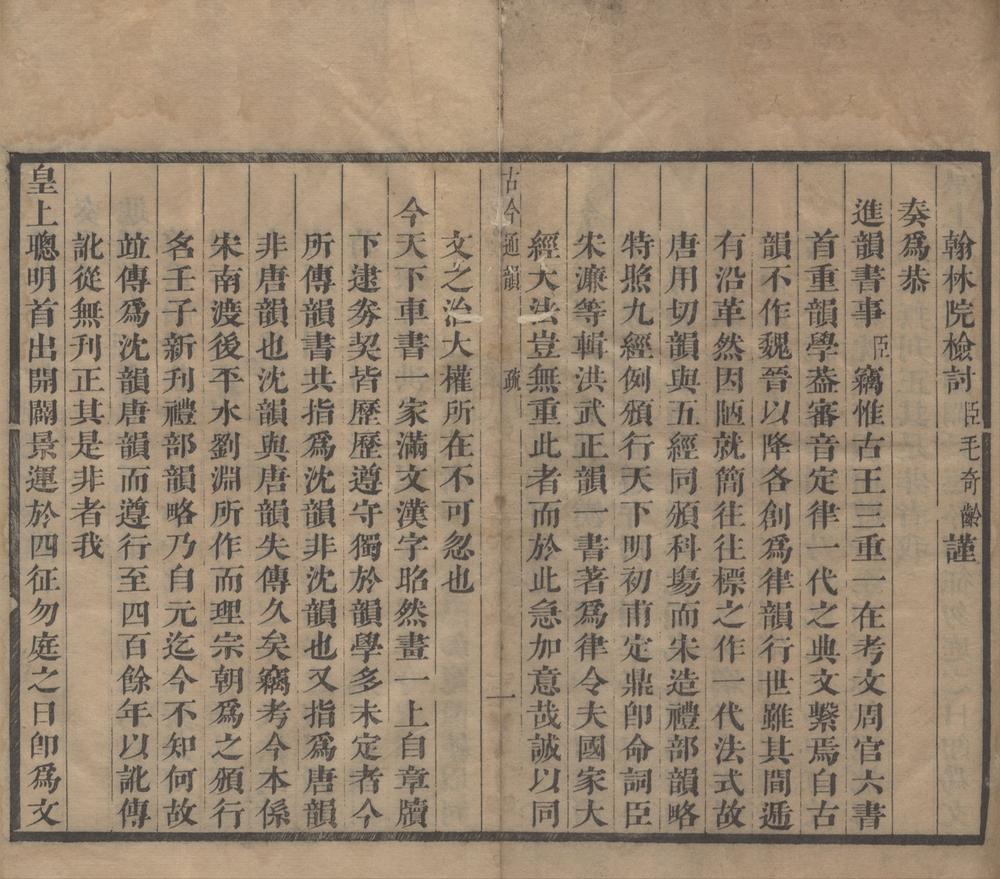 翰林院檢討臣毛奇齡謹
奏爲恭
進韻書事臣竊惟古王三重一在考文周官六書
首重韻學葢審音定律一代之典文繫焉自古
韻不作魏晉以降各創爲律韻行世雖其間遞
有沿革然因陋就簡往往標之作一代法式故
唐用切韻與五經同頒科塲而宋造禮部韻略
特照九經例頒行天下明初甫定鼎卽命詞臣
宋濂等輯洪武正韻一書著爲律令夫國家大
經大法豈無重此者而於此急加意哉誠以同
古今通韻 疏 一
文之治大權所在不可忽也
今天下車書一家滿文漢字昭然畫一上自章牘
下逮券契皆歷歷遵守獨於韻學多未定者今
所傳韻書共指爲沈韻非沈韻也又指爲唐韻
非唐韻也沈韻與唐韻失傳久矣竊考今本係
宋南渡後平水劉淵所作而理宗朝爲之頒行
名壬子新刊禮部韻略乃自元迄今不知何故
竝傳爲沈韻唐韻而遵行至四百餘年以訛傳
訛從無刊正其是非者我
皇上聰明首出開闢景運於四征勿庭之日卽爲文